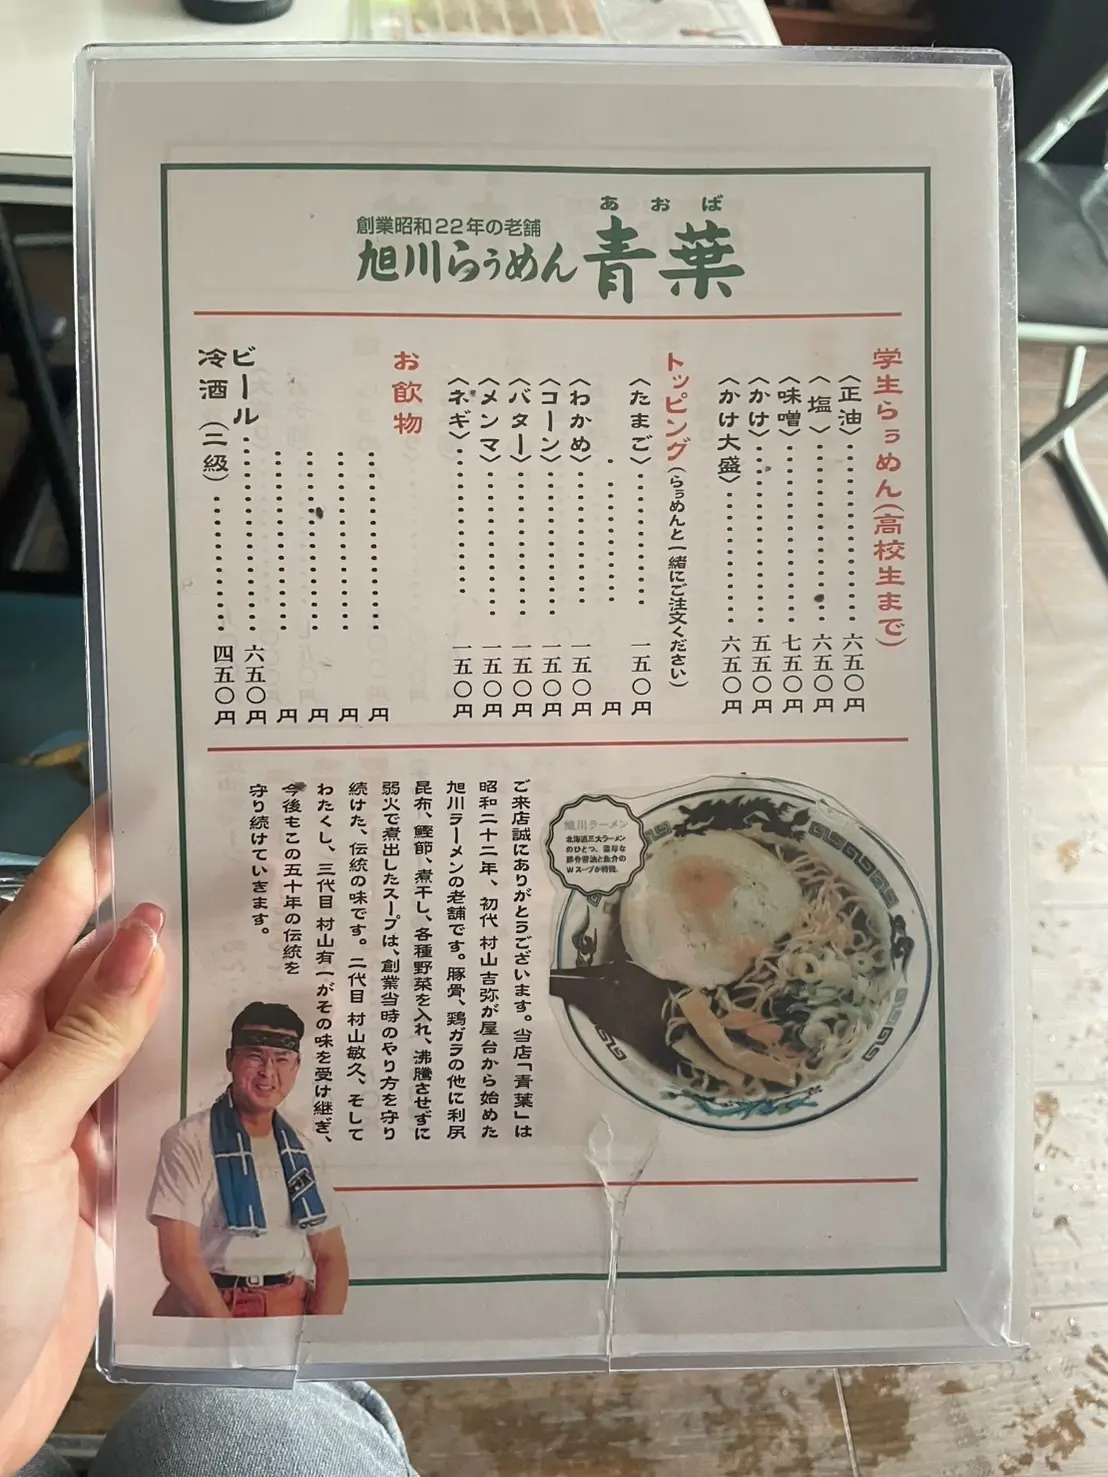 あおば
創業昭和22年の老舗
旭川らぅめん 青葉
学生らぅめん(高校生まで)
〈正油〉……………六五〇円
〈塩〉……………六五〇円
〈味噌〉……………七五〇円
〈かけ〉……………五五〇円
〈かけ大盛〉……………六五〇円
トッピング(らぅめんと一緒にご注文ください)
〈たまご〉……………一五〇円
……………円
〈わかめ〉……………一五〇円
〈コーン〉……………一五〇円
〈バター〉……………一五〇円
〈メンマ〉……………一五〇円
〈ネギ〉……………一五〇円
お飲物
……………円
……………円
……………円
……………円
ビール……………六五〇円
冷酒(二級)……………四五〇円
旭川ラーメン
北海道三大ラーメン
のひとつ。濃厚な
豚骨醤油と魚介の
Wスープが特徴。
ご来店誠にありがとうございます。当店「青葉」は
昭和二十二年、初代 村山吉弥が屋台から始めた
旭川ラーメンの老舗です。豚骨、鶏ガラの他に利尻
昆布、鰹節、煮干し、各種野菜を入れ、沸騰させずに
弱火で煮出したスープは、創業当時のやり方を守り
続けた、伝統の味です。二代目 村山敏久、そして
わたくし、三代目 村山有一がその味を受け継ぎ、
今後もこの五十年の伝統を
守り続けていきます。